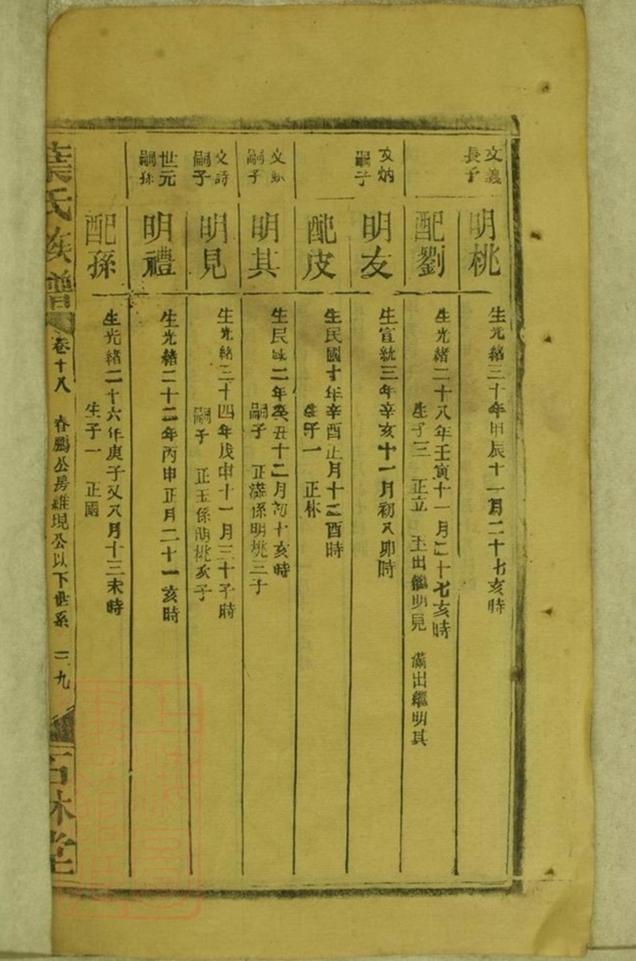 文義
長子
明桃
生光緒三十年甲辰十一月二十七亥時
配劉
生光緒二十八年壬寅十一月二十七亥時
生子三 正立 玉出繼明見 滿出繼明其
文炳
嗣子
明友
生宣統三年辛亥十一月初八卯時
配皮
生民國十年辛酉正月十二酉時
生子一 正林
嗣子
明其
生民國二年癸丑十二月初十亥時
嗣子 正滿係明桃三子
文詩
嗣子
明見
生光緒三十四年戊申十一月三十子時
嗣子 正玉係明桃次子
世元
嗣孫
明禮
生光緒二十二年丙申正月二十一亥時
配孫
生光緒二十六年庚子又八月十三未時
生子一 正國
葉氏族譜
卷十八
春鵬公房維現公以下世系
三九
石林堂